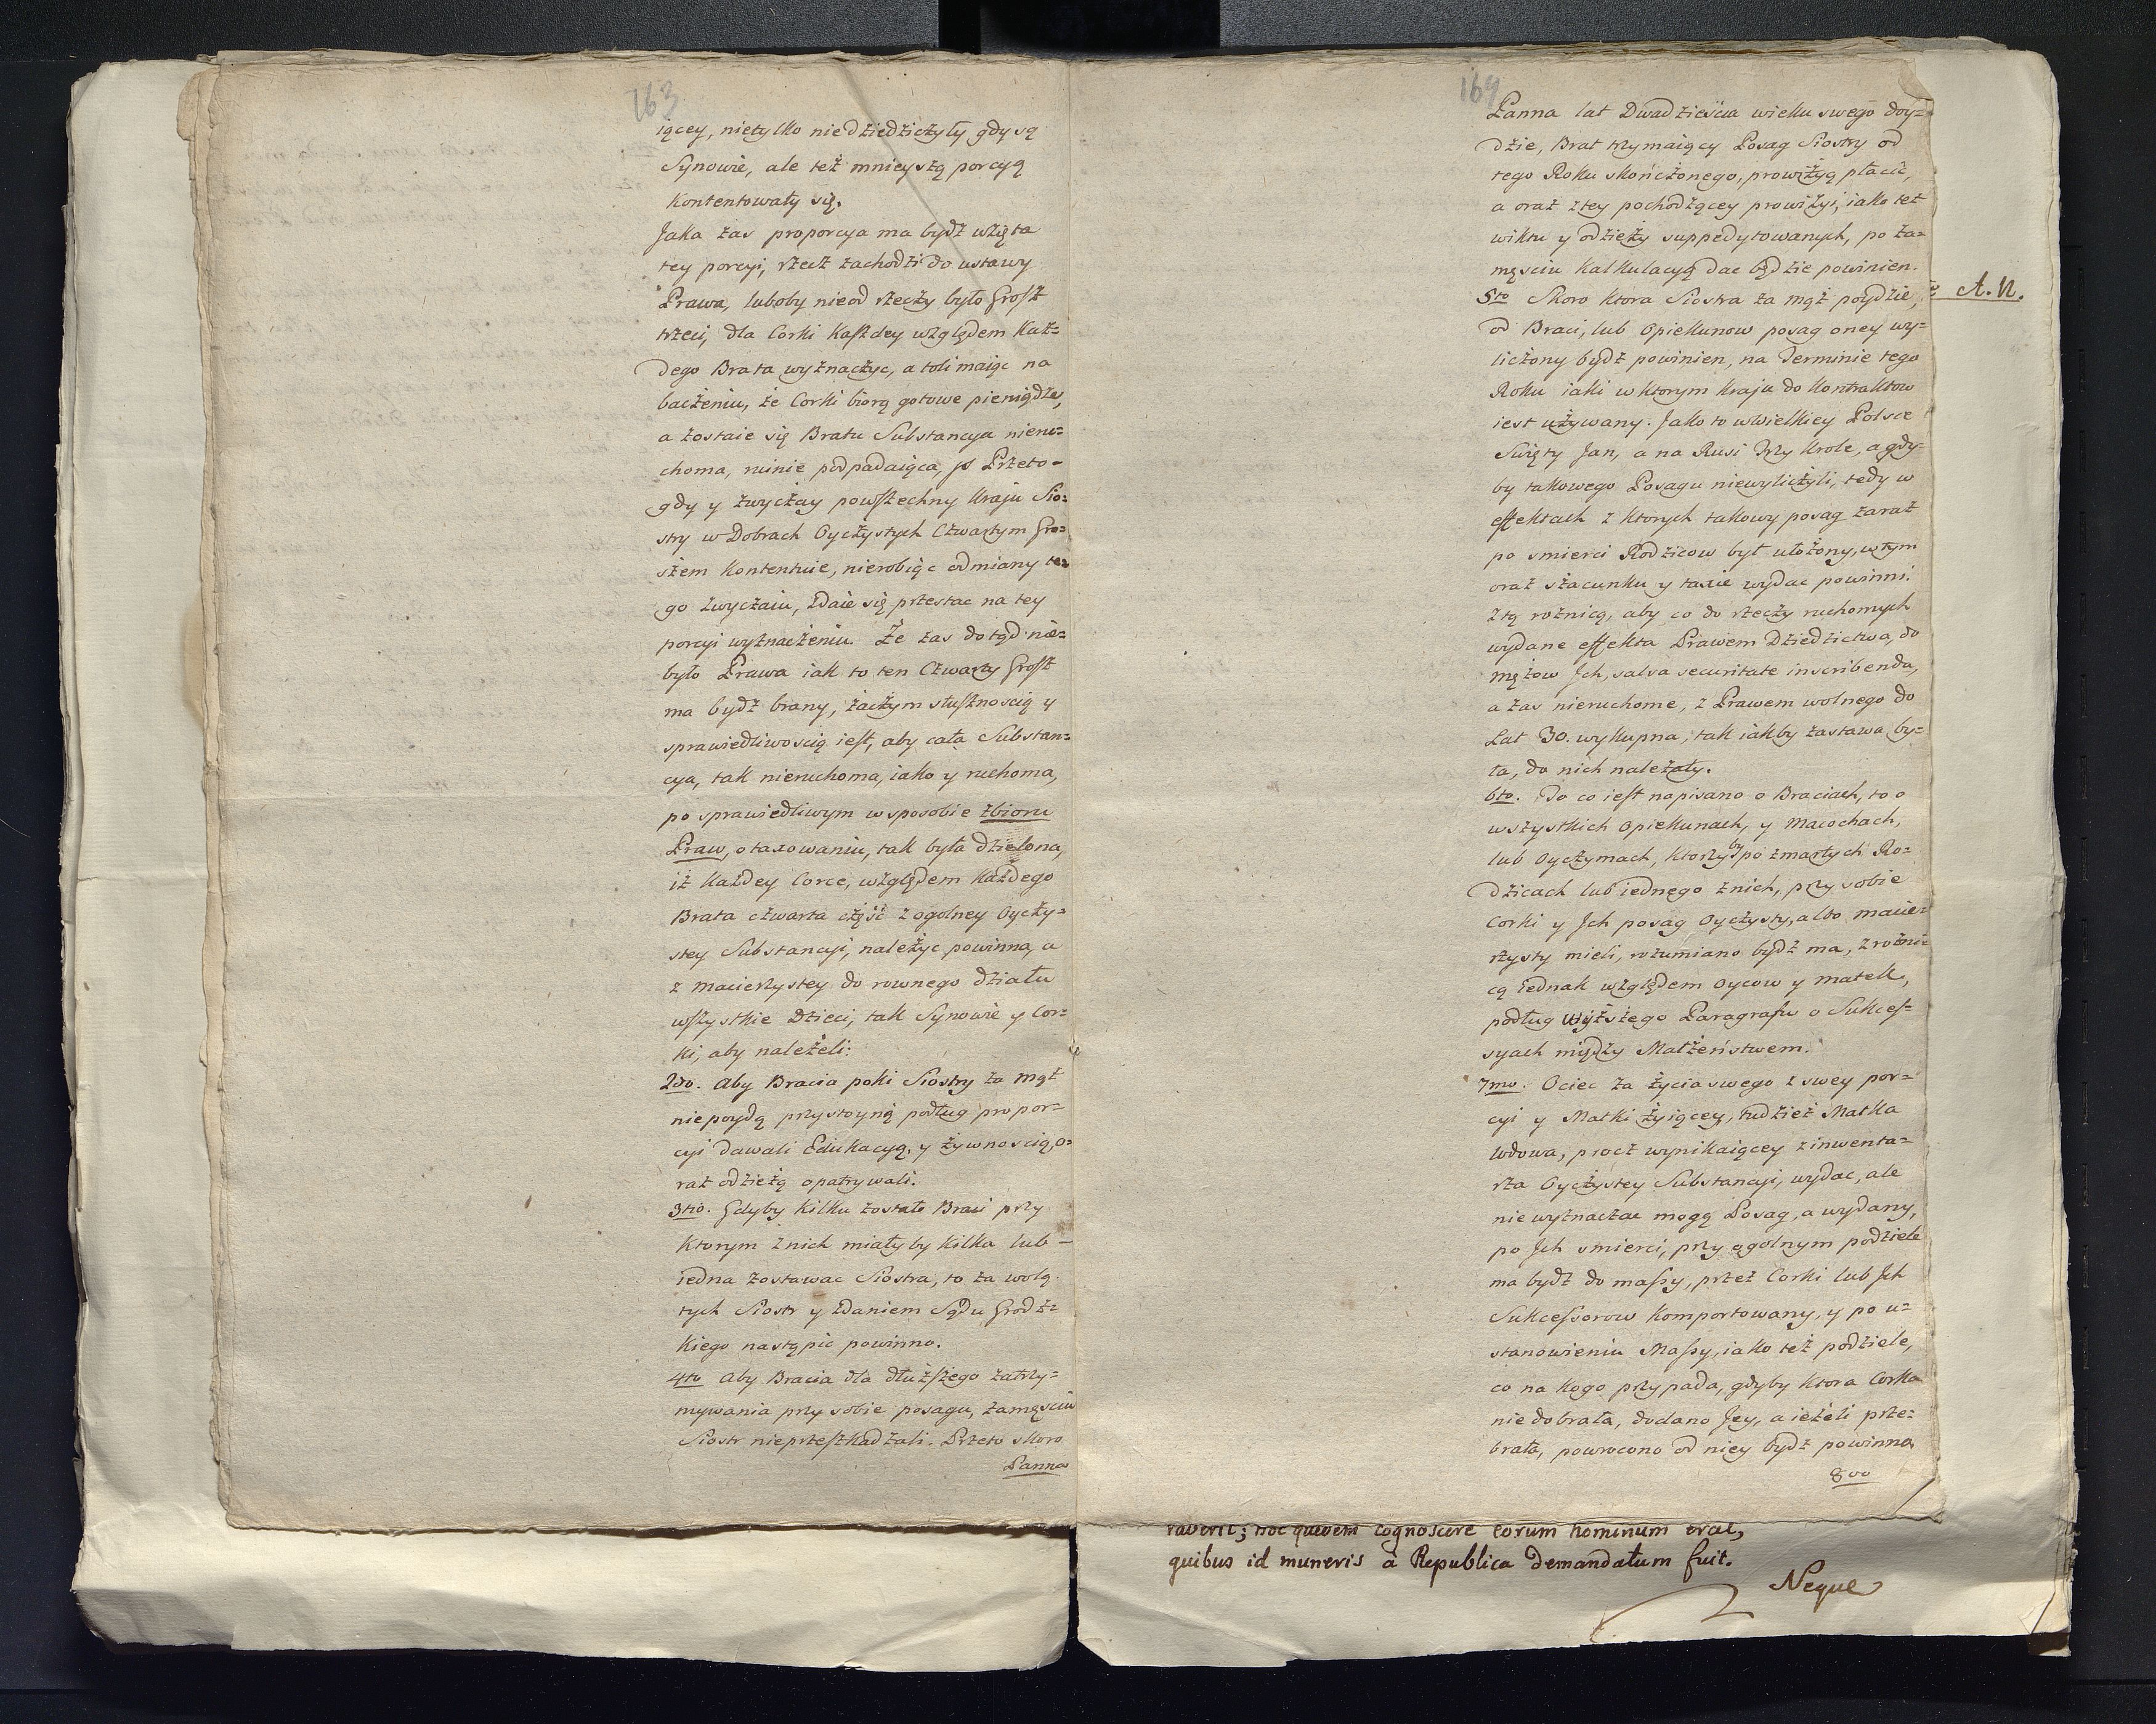 163
iącey, nietylko niedżiedżiczyły gdy są
Synowie, ale też mnieyszą porcyą
kontentowały się.
Jaka zas proporcya ma bydż wżięta
tey porcyi, rzecz zachodżi do ustawy
Prawa, luboby nieod rzeczy było Grosz
trzeci, dla Corki każdey względem każ=
dego Brata wyznaczyc, a toli maiąc na
baczeniu, że Corki biorą gotowe pieniądze,
a zostaie się Bratu Substancya nieru=
choma, ruinie podpadaiąca, Przeto-
gdy y zwyczay powszechny kraju Sio=
stry w Dobrach Oyczystych Czwartym Gro=
szem kontentuie, nierobiąc odmiany te=
go zwyczaiu, zdaie się przestac na tey
porcyi wyznaczeniu. Że zas dotąd nie=
było Prawa iak to ten Czwarty Grosz
ma bydż brany, zaczym słusznoscią y
sprawiedliwoscią iest, aby cała Substan=
cya, tak nieruchoma, iako y ruchoma,
po sprawiedliwym w sposobie zbioru
Praw, otaxowaniu, tak była dzielona,
iż każdey Corce, względem każdego
Brata czwarta część z ogolney Oyczy=
stey Substancyi, należyc powinna, a
z macierzystey do rownego działu
wszystkie Dzieci, tak Synowie y Cor=
ki, aby należeli:
2do. Aby Bracia poki Siostry za mąż
niepoydą przystoyną podług propor=
cyi dawali Edukacyą, y żywnoscią, o=
raz odzieżą opatrywali.
3tio. Gdyby kilku zostało Braci przy
ktorym z nich miałyby kilka lub -
iedna zostawac Siostra, to za wolą
tych Siostr y zdaniem Sądu Grodz=
kiego nastąpic powinno.
4to Aby Bracia dla dłuższego zatrzy=
mywania przy sobie posagu, zamęsciu
Siostr nieprzeszkadzali. Przeto skoro
Panna
169
Panna lat Dwadzieścia wieku swego doy=
dzie, Brat trzymaiący Posag Siostry od
tego Roku skończonego, prowizyą płacić,
a oraz z tey pochodzącey prowizyi, iako też
wiktu y odzieży suppedytowanych, po za=
męsciu kalkulacyą dac będzie powinien.
5to Skoro ktora Siostra za mąż poydzie,
A. N.
od Braci, lub Opiekunow posag oney wy=
liczony bydż powinien, na Terminie tego
Roku iaki w ktorym kraju do kontraktow
iest używany. Jako to w Wielkiey Polsce
Swięty Jan, a na Rusi Trzy Krole, a gdy-
by takowego Posagu niewyliczyli, tedy w
effektach z ktorych takowy posag zaraz
po smierci Rodzicow był ułożony, w tym
oraz szacunku y taxie wydac powinni.
Z tą rożnicą, aby co do rzeczy ruchomych
wydane effekta Prawem Dziedzictwa, do
mężow Jch, salva securitate inscribenda,
a zas nieruchome, z Prawem wolnego do
Lat 30. wykupna, tak iakby zastawa by=
ła, do nich należały.
6to. To co iest napisano o Braciach, to o
wszystkich Opiekunach, y Macochach,
lub Oyczymach, ktorzyby po zmarłych Ro=
dzicach lub iednego z nich, przy sobie
Corki y Jch posag Oyczysty, albo macie=
rzysty mieli, rozumiano bydż ma, z rożni=
cą iednak względem Oycow y matek,
podług wyższego Paragrafu o Sukces=
syach między Małżeństwem.
7mo. Ociec za życia swego z swey por=
cyi y Matki żyiącey, tudzież Matka
Wdowa, procz wynikaiącey z inwenta=
rza Oyczystey Substancyi, wydac, ale
nie wyznaczac mogą Posag, a wydany,
po Jch smierci, przy ogolnym podziele
ma bydż do massy, przez Corki lub Jch
Sukcessorow komportowany, y po u=
stanowieniu Massy, iako też podziele,
co na kogo przypada, gdyby ktora Corka
nie dobrała, dodano Jey, a ieżeli prze=
brała, powrocono od niey bydż powinno
8vo
raverit; hoc quidem cognoscere eorum hominum erat,
quibus id muneris à Republica demandatum fuit.
Neque